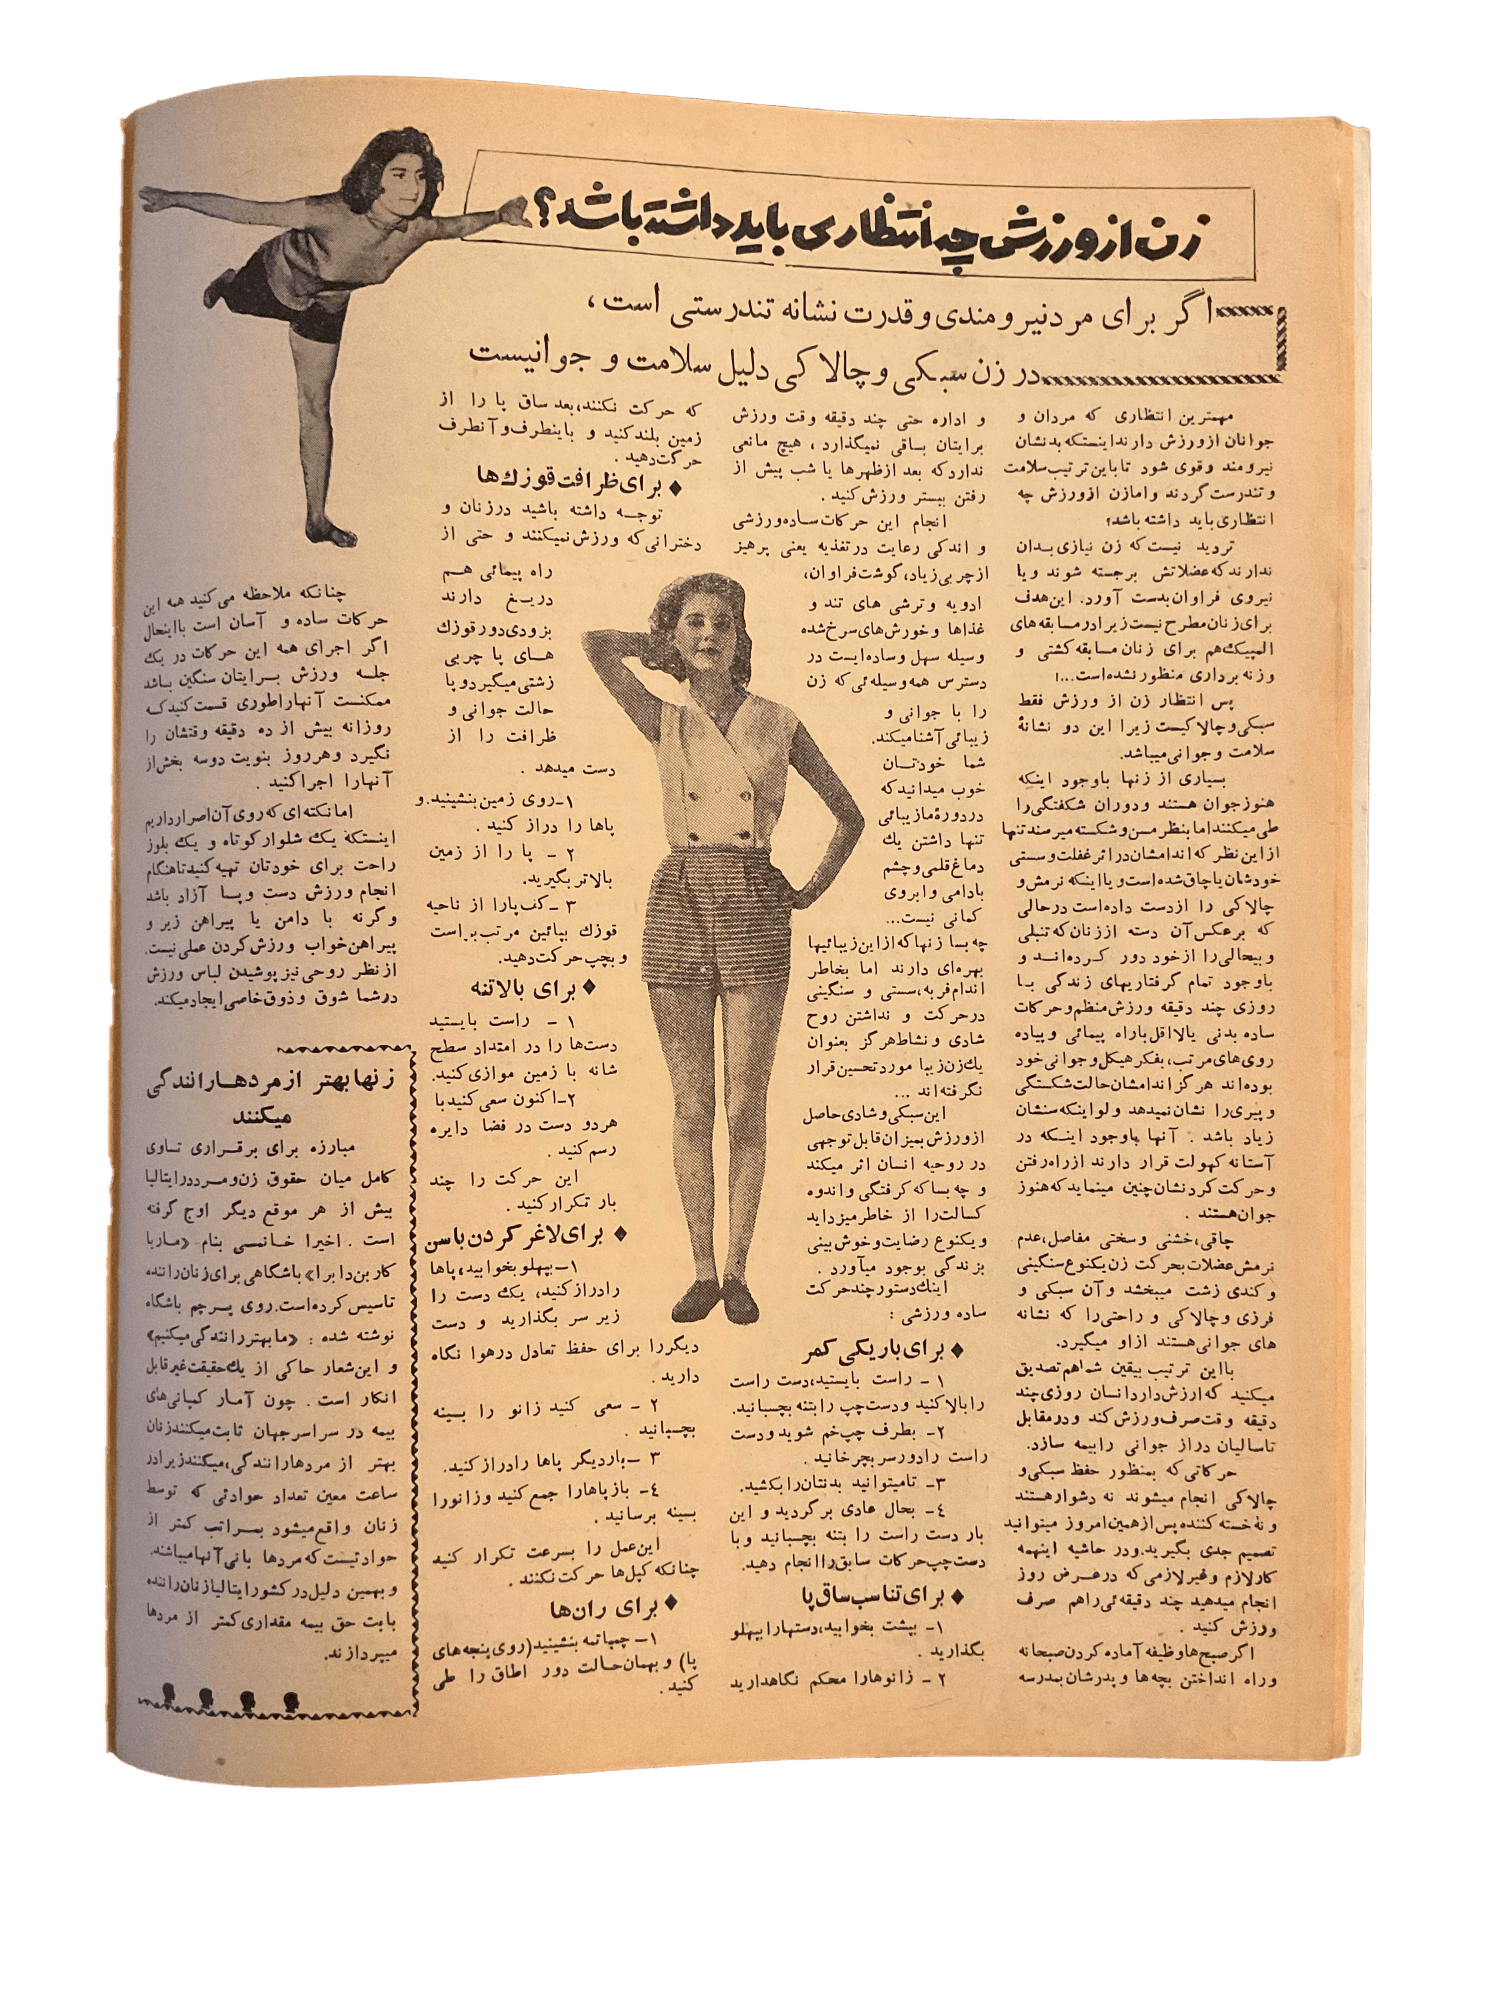 زن از ورزش چه انتظاری باید داشته باشد؟
اگر برای مرد نیرومندی و قدرت نشانه تندرستی است،
در زن سبکی و چالاکی دلیل سلامت و جوانیست
مهمترین انتظاری که مردان و
جوانان از ورزش دارند اینستکه بدنشان
نیرومند وقوی شود تا باین ترتیب سلامت
و تندرست گردند و اما زن از ورزش چه
انتظاری باید داشته باشد؟
تردید نیست که زن نیازی بدان
ندارند که عضلاتش برجسته شوند و یا
نیروی فراوان بدست آورد. این هدف
برای زنان مطرح نیست زیرا در مسابقه های
المپیک هم برای زنان مسابقه کشتی و
وزنه برداری منظور نشده است...!
پس انتظار زن از ورزش فقط
سبکی و چالاکیست زیرا این دو نشانهٔ
سلامت و جوانی میباشد.
بسیاری از زنها با وجود اینکه
هنوز جوان هستند و دوران شکفتگی را
طی میکنند اما بنظر مسن و شکسته میرسند تنها
از این نظر که اندامشان در اثر غفلت و سستی
خودشان یا چاق شده است و یا اینکه نرمش و
چالاکی را از دست داده است در حالی
که برعکس آن دسته از زنان که تنبلی
و بیحالی را از خود دور کرده اند و
با وجود تمام گرفتاریهای زندگی با
روزی چند دقیقه ورزش منظم و حرکات
ساده بدنی یا لااقل با راه پیمائی و پیاده
روی های مرتب، بفکر هیکل و جوانی خود
بوده اند هرگز اندامشان حالت شکستگی
و پیری را نشان نمیدهد ولو اینکه سنشان
زیاد باشد . آنها با وجود اینکه در
آستانه کهولت قرار دارند از راه رفتن
و حرکت کردنشان چنین مینماید که هنوز
جوان هستند .
چاقی، خشنی و سختی مفاصل، عدم
نرمش عضلات بحرکت زن یکنوع سنگینی
و کندی زشت میبخشد و آن سبکی و
فرزی و چالاکی و راحتی را که نشانه
های جوانی هستند از او میگیرد.
با این ترتیب بیقین شما هم تصدیق
میکنید که ارزش دارد انسان روزی چند
دقیقه وقت صرف ورزش کند و در مقابل
تا سالیان دراز جوانی را بیمه سازد.
حرکاتی که بمنظور حفظ سبکی و
چالاکی انجام میشوند نه دشوار هستند
و نه خسته کننده پس از همین امروز میتوانید
تصمیم جدی بگیرید. و در حاشیه اینهمه
کار لازم و غیر لازمی که در عرض روز
انجام میدهید چند دقیقه ئی را هم صرف
ورزش کنید .
اگر صبح ها وظیفه آماده کردن صبحانه
و راه انداختن بچه ها و پدرشان بمدرسه
و اداره حتی چند دقیقه وقت ورزش
برایتان باقی نمیگذارد ، هیچ مانعی
ندارد که بعد از ظهرها یا شب پیش از
رفتن ببستر ورزش کنید .
انجام این حرکات ساده ورزشی
و اندکی رعایت در تغذیه یعنی پرهیز
از چربی زیاد، گوشت فراوان،
ادویه و ترشی های تند و
غذاها و خورش های سرخ شده
وسیله سهل و ساده ایست در
دسترس همه وسیله ئی که زن
را با جوانی و
زیبائی آشنا میکند.
شما خودتان
خوب میدانید که
در دورهٔ ما زیبائی
تنها داشتن یک
دماغ قلمی و چشم
بادامی و ابروی
کمانی نیست...
چه بسا زنها که از این زیبائیها
بهره ای دارند اما بخاطر
اندام فربه، سستی و سنگینی
در حرکت و نداشتن روح
شادی و نشاط هرگز بعنوان
یک زن زیبا مورد تحسین قرار
نگرفته اند ...
این سبکی و شادی حاصل
از ورزش بمیزان قابل توجهی
در روحیه انسان اثر میکند
و چه بسا که گرفتگی و اندوه
کسالت را از خاطر میزداید
و یکنوع رضایت و خوش بینی
بزندگی بوجود میآورد .
اینک دستور چند حرکت
ساده ورزشی :
♦ برای باریکی کمر
۱ - راست بایستید، دست راست
را بالا کنید و دست چپ را بتنه بچسبانید.
۲- بطرف چپ خم شوید و دست
راست را دور سر بچرخانید .
۳- تا میتوانید بدنتان را بکشید.
۴- بحال عادی برگردید و این
بار دست راست را بتنه بچسبانید و با
دست چپ حرکات سابق را انجام دهید.
♦ برای تناسب ساق پا
۱- بپشت بخوابید، دستها را بپهلو
بگذارید .
۲ - زانوها را محکم نگاهدارید
که حرکت نکنند، بعد ساق پا را از
زمین بلند کنید و باینطرف و آنطرف
حرکت دهید .
♦ برای ظرافت قوزک ها
توجه داشته باشید در زنان و
دخترانی که ورزش نمیکنند و حتی از
راه پیمائی هم
دریغ دارند
بزودی دور قوزک
های پا چربی
زشتی میگیرد و پا
حالت جوانی و
ظرافت را از
دست میدهد .
۱-روی زمین بنشینید. و
پاها را دراز کنید .
۲ - پا را از زمین
بالاتر بگیرید.
۳ -کف پا را از ناحیه
قوزک بپائین مرتب براست
و بچپ حرکت دهید.
♦ برای بالاتنه
۱ - راست بایستید
دست‌ها را در امتداد سطح
شانه با زمین موازی کنید.
۲-اکنون سعی کنید با
هر دو دست در فضا دایره
رسم کنید .
این حرکت را چند
بار تکرار کنید .
♦ برای لاغر کردن باسن
۱-بپهلو بخوابید، پاها
را دراز کنید، یک دست را
زیر سر بگذارید و دست
دیگر را برای حفظ تعادل در هوا نگاه
دارید .
۲ - سعی کنید زانو را بسینه
بچسبانید .
۳ -باردیگر پاها را دراز کنید.
۴- باز پاها را جمع کنید و زانو را
بسینه برسانید .
این عمل را بسرعت تکرار کنید
چنانکه کپل‌ها حرکت نکنند .
♦ برای ران‌ها
۱- چمباتمه بنشینید (روی پنجه های
پا) و بهمان حالت دور اطاق را طی
کنید .
چنانکه ملاحظه می کنید همه این
حرکات ساده و آسان است با اینحال
اگر اجرای همه این حرکات در یک
جلسه ورزش برایتان سنگین باشد
ممکنست آنها را طوری قسمت کنید که
روزانه بیش از ده دقیقه وقتشان را
نگیرد و هر روز بنوبت دو سه بخش از
آنها را اجرا کنید .
اما نکته ای که روی آن اصرار داریم
اینستکه یک شلوار کوتاه و یک بلوز
راحت برای خودتان تهیه کنید تا هنگام
انجام ورزش دست و پا آزاد باشد
وگرنه با دامن یا پیراهن زیر و
پیراهن خواب ورزش کردن عملی نیست.
از نظر روحی نیز پوشیدن لباس ورزش
در شما شوق و ذوق خاصی ایجاد میکند.
زنها بهتر از مردها رانندگی
میکنند
مبارزه برای برقراری تساوی
کامل میان حقوق زن و مرد در ایتالیا
بیش از هر موقع دیگر اوج گرفته
است . اخیرا خانمی بنام «ماریا
کاربن دابرا» باشگاهی برای زنان راننده
تاسیس کرده است. روی پرچم باشگاه
نوشته شده : «ما بهتر رانندگی میکنیم»
و این شعار حاکی از یک حقیقت غیر قابل
انکار است . چون آمار کمپانی های
بیمه در سراسر جهان ثابت میکنند زنان
بهتر از مردها رانندگی، میکنند زیرا در
ساعت معین تعداد حوادثی که توسط
زنان واقع میشود بمراتب کمتر از
حوادثیست که مردها بانی آنها میباشند.
و بهمین دلیل در کشور ایتالیا زنان راننده
بابت حق بیمه مقداری کمتر از مردها
میپردازند.